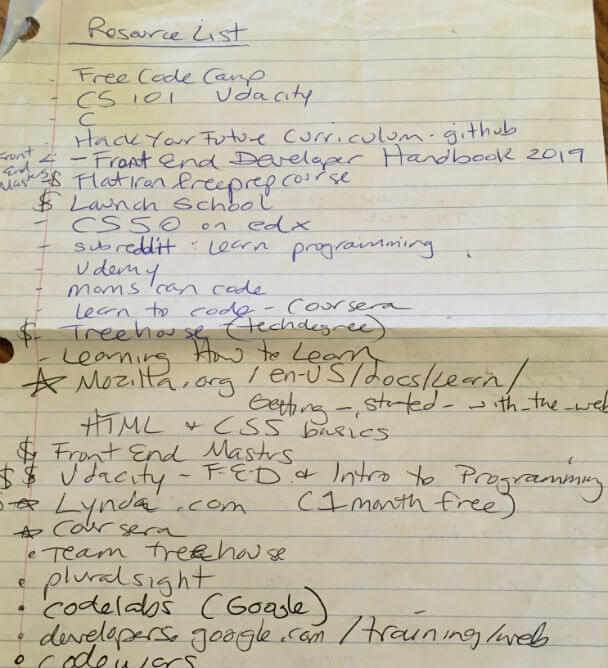 Resource List
- Free Code Camp
- CS 101 Udacity
- C
- Hack Your Future Curriculum. github
Front End Mast
- Front End Developer Handbook 2019
$ Flatiron free prep course
$ Launch School
- CS50 on edx
- subreddit: learn programming
- Udemy
- moms can code
- learn to code - Coursera
$ - Treehouse (techdegree)
- Learning How to Learn
☆ Mozilla.org / en-US/docs/Learn/
Getting_started_with_the_web
HTML & CSS basics
$ Front End Mastrs
$$ Udacity - F.E.D & Intro to Programming
☆ Lynda.com (1 month free)
☆ Coursera
• Team treehouse
• pluralsight
• codelabs (Google)
• developers.google.com/training/web
• codewars